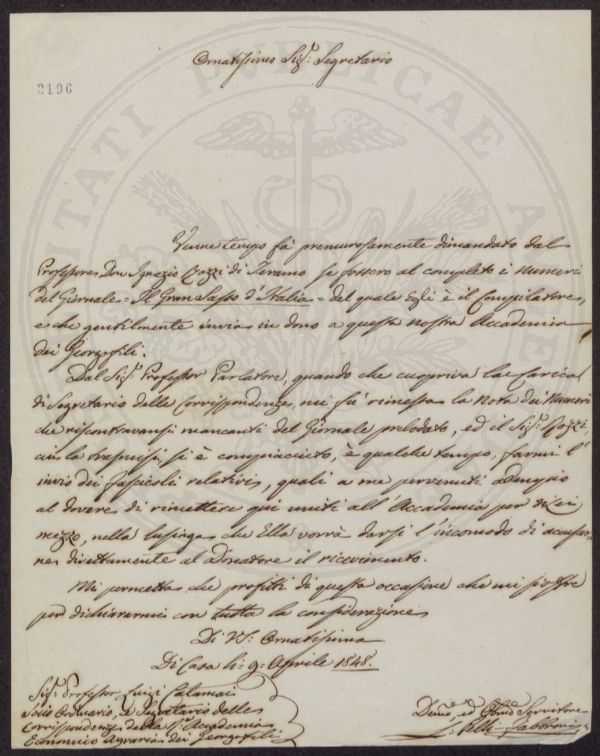 Ornatissimo Sig:r Segretario
2196
Venne tempo fà premurosamente dimandato dal
Professore Don Ignazio Rozzi di Teramo se fossero al completo i Numeri
del Giornale = Il Gran Sasso d'Italia = del quale Egli è il Compilatore,
e che gentilmente invia in dono a questa nostra Accademia
dei Georgofili.
Dal Sig:r Professor Parlatore, quando che cuopriva la Carica
di Segretario delle Corrispondenze, mi fù rimessa la Nota dei Numeri
che riscontravansi mancanti del Giornale prelodato, ed il Sig:r Rozzi,
cui la trasmissi, si è compiaciuto, è qualche tempo, farmi l'
invio dei fascicoli relativi, quali a me pervenuti adempio
al dovere di rimettere qui uniti all'Accademia per di Lei
mezzo, nella lusinga che Ella vorrà darsi l'incomodo di accusar-
ne direttamente al Donatore il ricevimento.
Mi permetta che profitti di questa occasione che mi si offre
per dichiararmi con tutta la considerazione
Di V: S: Ornatissima
Di Casa li 9 Aprile 1848.
Sig:r Professor Luigi Calamai
Socio Ordinario, e Segretario delle
Corrispondenze della R. Accademia
Economico Agraria dei Georgofili
Dev:mo ed Obb:mo Servitore
Fabbroni
PUBLICAE